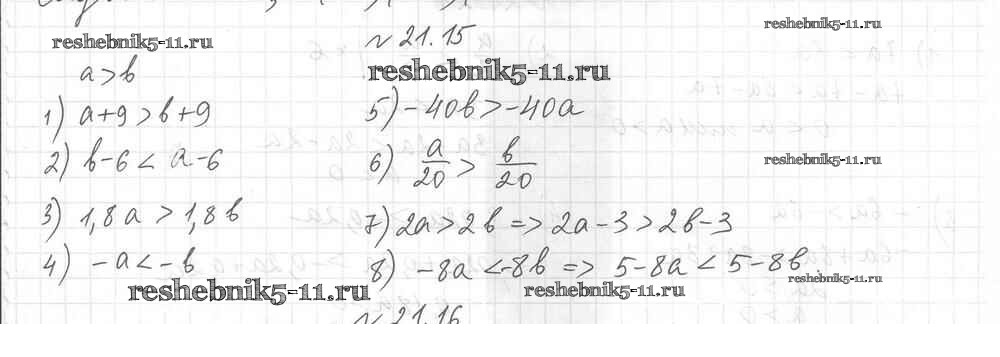 reshebnik5-11.ru
№ 21.15
reshebnik5-11.ru
a>b
reshebnik5-11.ru
1) a+9>b+9
2) b-6< a-6
3) 1,8a > 1,8b
4) -a<-b
5) -40b>-40a
6) a/20 > b/20
reshebnik5-11.ru
7) 2a>2b => 2a-3>2b-3
8) -8a<-8b => 5-8a<5-8b
reshebnik5-11.ru
reshebnik5-11.ru
reshebnik5-11.ru
№ 21.16